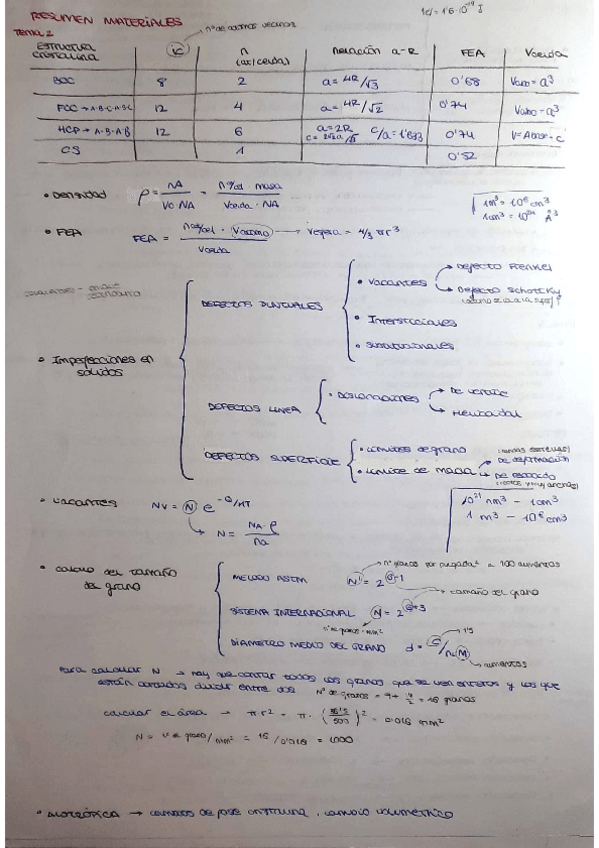 RESUMEN MATERIALES
1eV = 1'6·10^-19 J
Tema 2
nº de átomos vecinos
ESTRUCTURA CRISTALINA ic n (at/celda) Relación a-R FEA Vcelda
BCC 8 2 a = 4R/√3 0'68 Vcubo = a³
FCC → A·B·C·A·B·C 12 4 a = 4R/√2 0'74 Vcubo = a³
HCP → A·B·A·B 12 6 a = 2R c/a = 1'633 0'74 V = Abase · c
CS 1 0'52
• Densidad ρ = nA / Vc·NA = nºat · masa / Vcelda · NA
1m³ = 10⁶ cm³
1cm³ = 10²⁴ Å³
• FEA FEA = nºat/cel · Vátomo / Vcelda → Vesfera = 4/3 π r³
• Imperfecciones en sólidos
DEFECTOS PUNTUALES
• Vacantes → Defecto Frenkel
→ Defecto Schottky
• Intersticiales
• Sustitucionales
DEFECTOS LÍNEA • Dislocaciones → De cuña
→ Helicoidal
DEFECTOS SUPERFICIE • Límites de grano
• Límite de macla → De deformación
→ De recocido
• Vacantes Nv = N e^-Q/KT
→ N = NA·ρ / ma
10²¹ nm³ - 1cm³
1 m³ - 10⁶ cm³
• Cálculo del tamaño del grano
nº granos por pulgada² a 100 aumentos
MÉTODO ASTM N = 2^G-1 → tamaño del grano
SISTEMA INTERNACIONAL N = 2^G+3
nº de granos · mm²
DIÁMETRO MEDIO DEL GRANO d = C/n·M
1'5
aumentos
Para calcular N → hay que contar todos los granos que se ven enteros y los que
están cortados dividir entre dos Nº de granos = 9 + /2 = 16 granos
calcular el área → π·r² = π · ( /500)² = 0'016 mm²
N = nº de grano/mm² = 16 / 0'016 = 1000
• ALOTRÓPICA → cambios de fase cristalina, cambio volumétrico